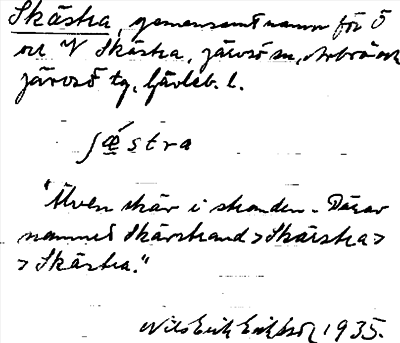 Skästra, gemensamt namn för Ö
och V Skästra, Järvsö sn, Arbrå och
Järvsö tg, Gävleb. l.
ʃǽstra
"Älven skär i stranden. Därav
namnet Skärstrand > Skärstra >
> Skästra."
Nils Erik Eriksson 1935.